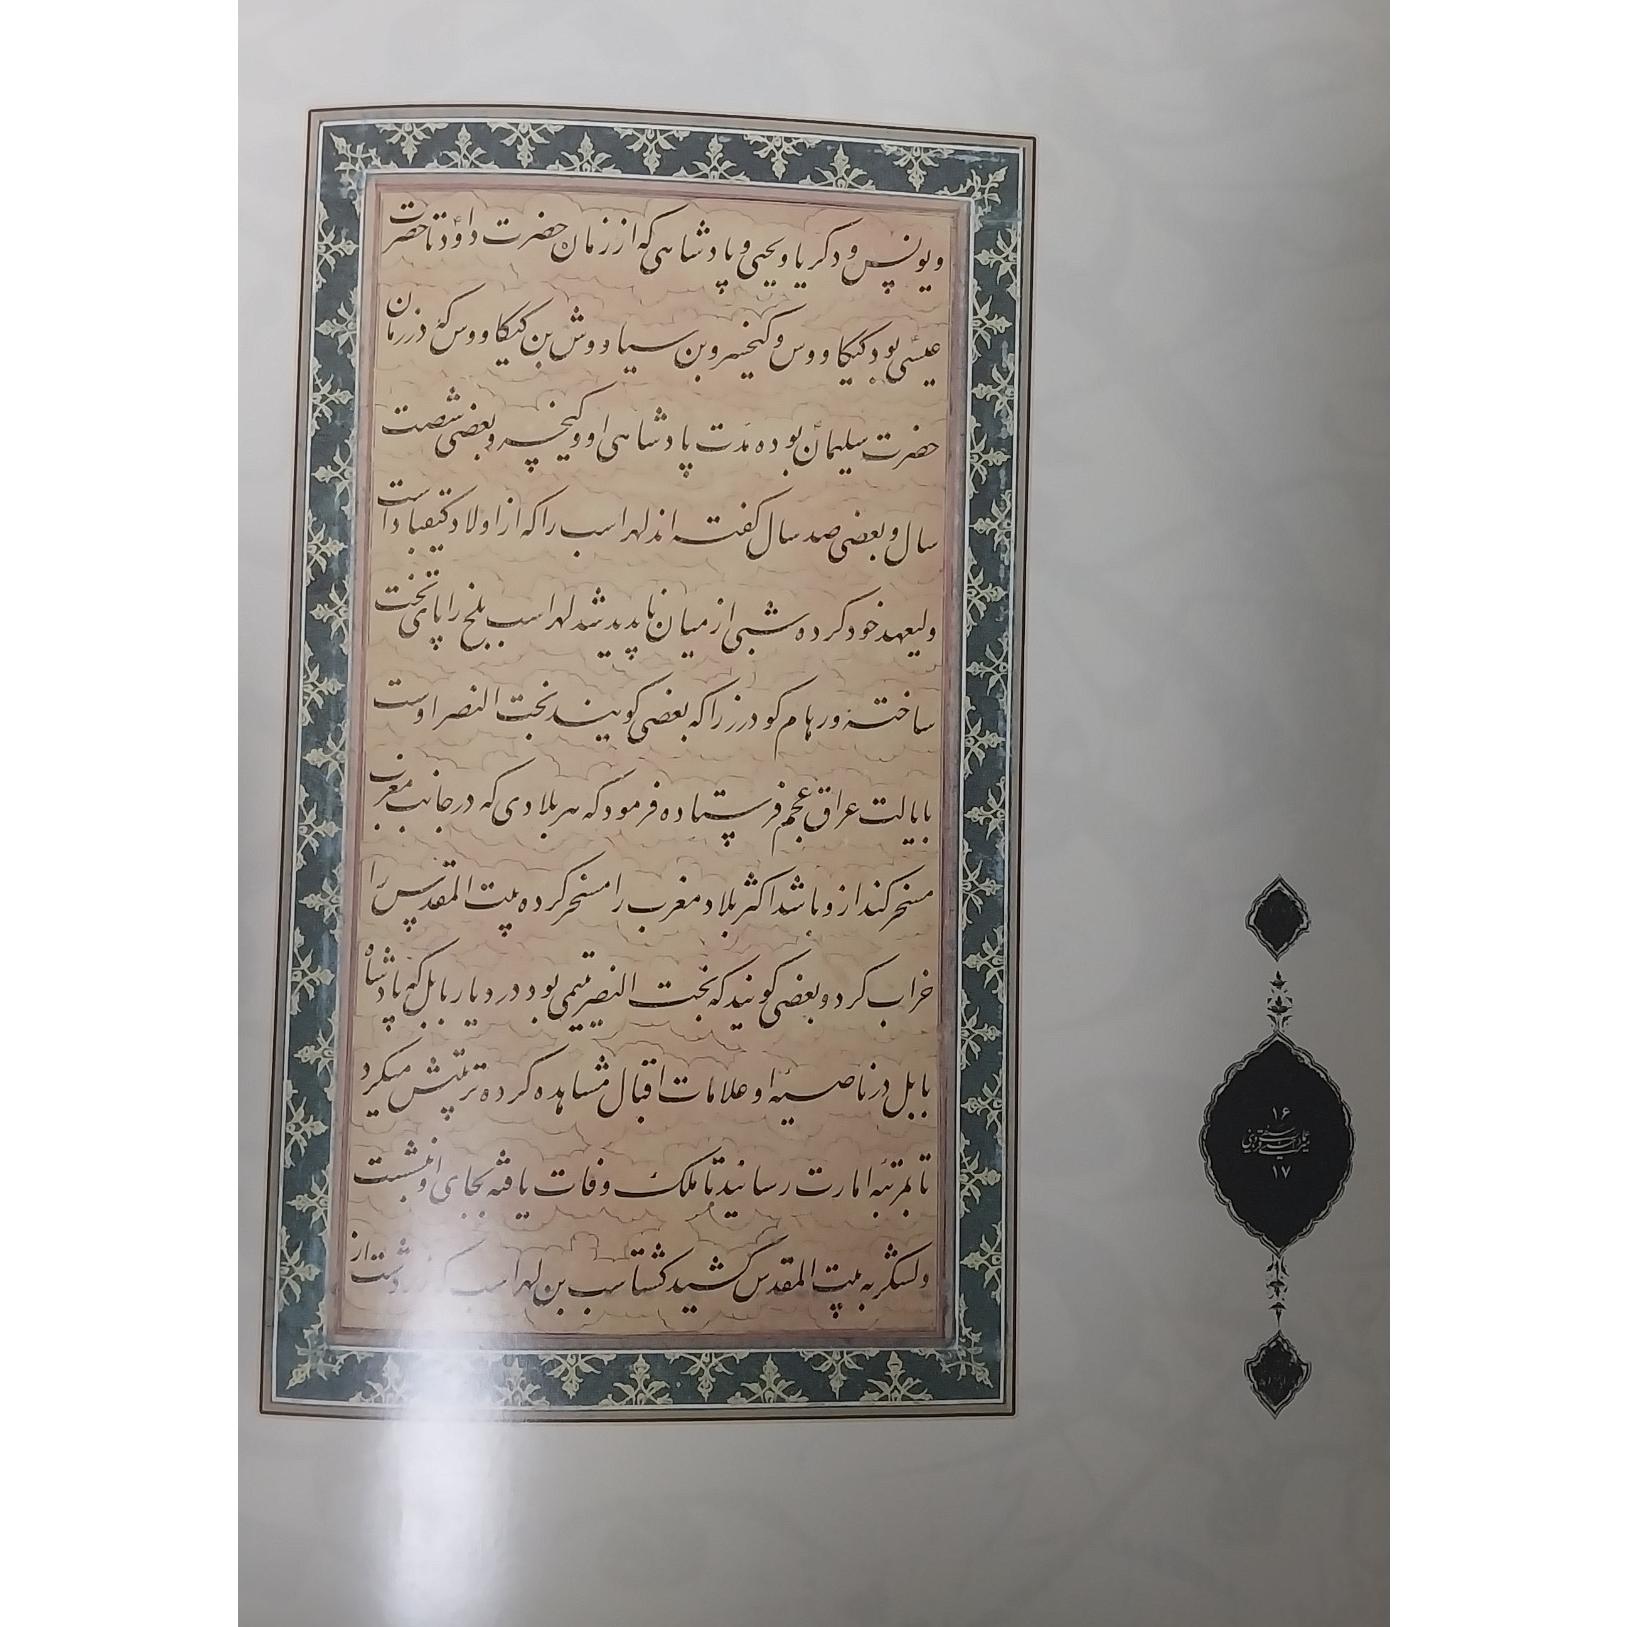 و یونس و ذکریا و یحیی و پادشاهی که از زمان حضرت داود تا حضرت
عیسی بود کیکاووس و کیخسرو بن سیاووش بن کیکاووس که در زمان
حضرت سلیمان بوده مدت پادشاهی او و کیخسرو بعضی شصت
سال و بعضی صد سال گفته اند لهراسب را که از اولاد کیقباد است
ولیعهد خود کرده شبی از میان ناپدید شد لهراسب بلخ را پای تخت
ساخته و رهام گودرز را که بعضی گویند بخت النصر اوست
بایالت عراق عجم فرستاده فرمود که هر بلادی که در جانب مغرب
مسخر کند ازو باشد اکثر بلاد مغرب را مسخر کرده بیت المقدس را
خراب کرد و بعضی گویند که بخت النصر یتیمی بود در دیار بابل که پادشاه
بابل در ناصیه او علامات اقبال مشاهده کرده تربیتش میکرد
تا بمرتبه امارت رسانید تا ملک وفات یافته بجای او نشست
و لشکر به بیت المقدس کشید گشتاسب بن لهراسب که زردشت از
۱۶
۱۷